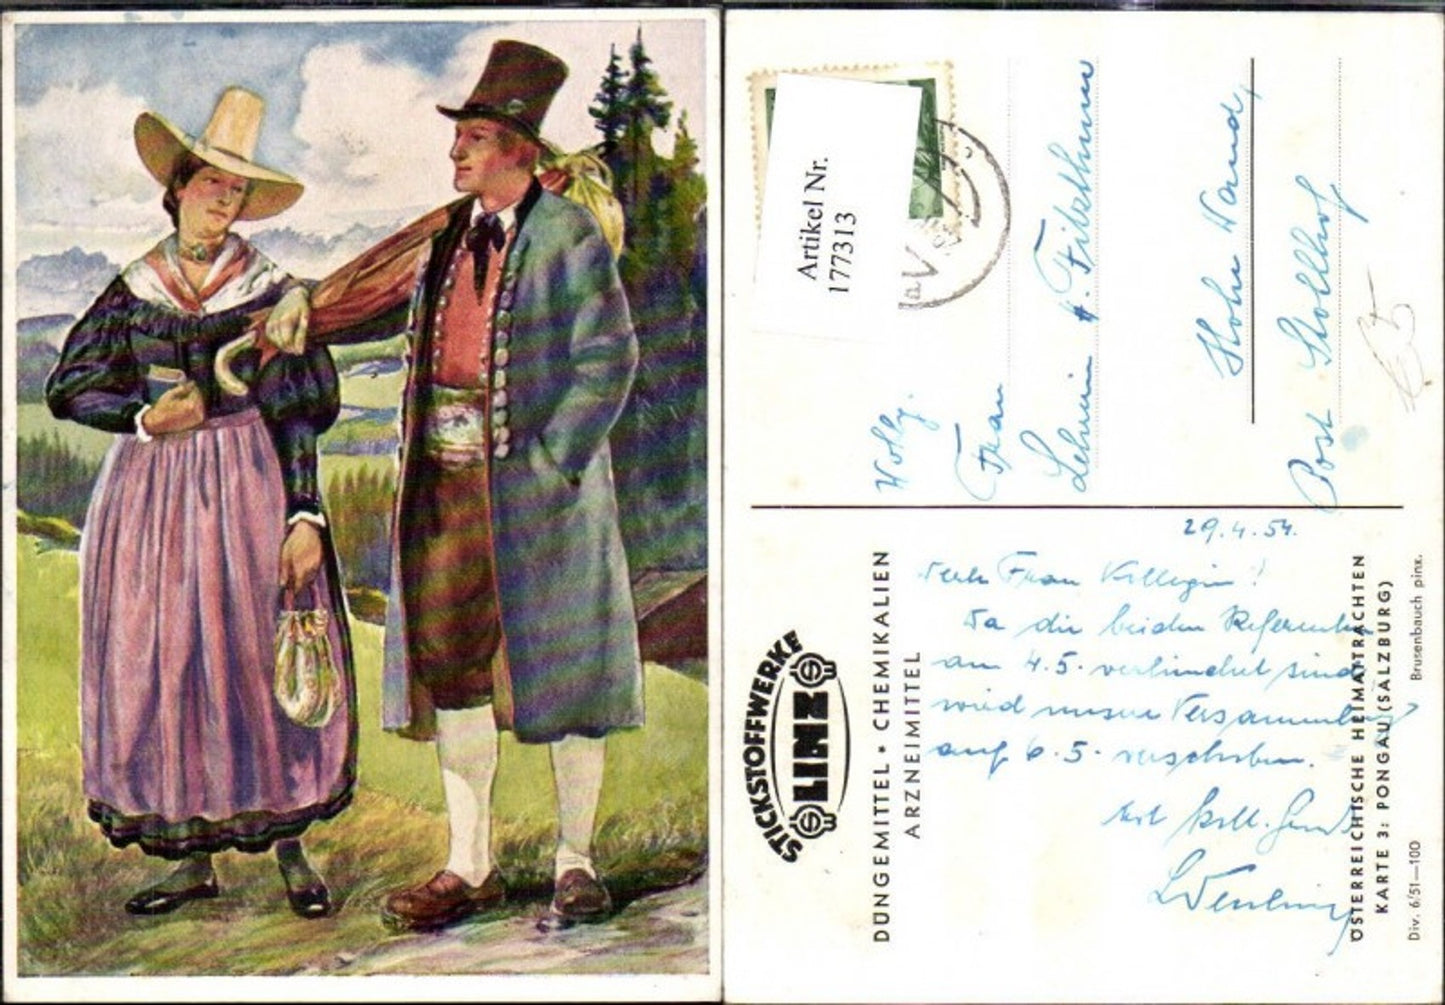 Artikel Nr.
177313
Wohlg.
Frau
Lehrerin
Hohe Wand,
Post Stollhof
29.4.54.
Frau Kollegin!
Da die beiden Referenten
am 4.5. verhindert sind,
wird unsere Versammlung
auf 6.5. verschoben.
Mit koll. Gruß
STICKSTOFFWERKE
LINZ
DÜNGEMITTEL • CHEMIKALIEN
ARZNEIMITTEL
ÖSTERREICHISCHE HEIMATTRACHTEN
KARTE 3: PONGAU (SALZBURG)
Brusenbauch pinx.
Div. 6/51—100